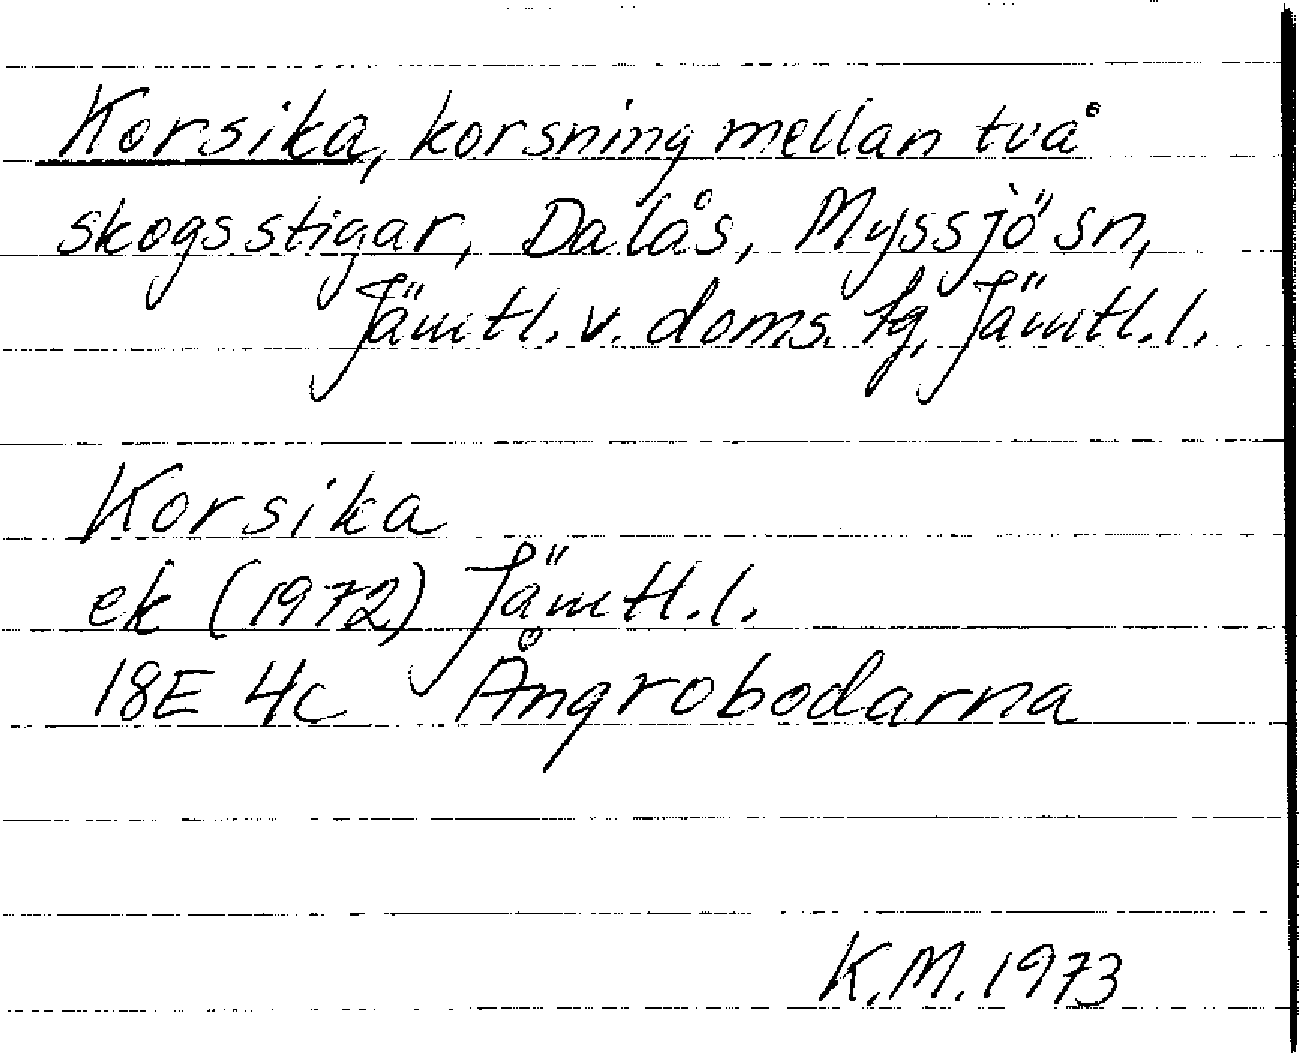 Korsika, korsning mellan två
skogsstigar, Dalås, Myssjö sn,
Jämtl. v. doms. fg, Jämtl. l.
Korsika
ek (1972) Jämtl. l.
18E 4c Ångrobodarna
K.M. 1973